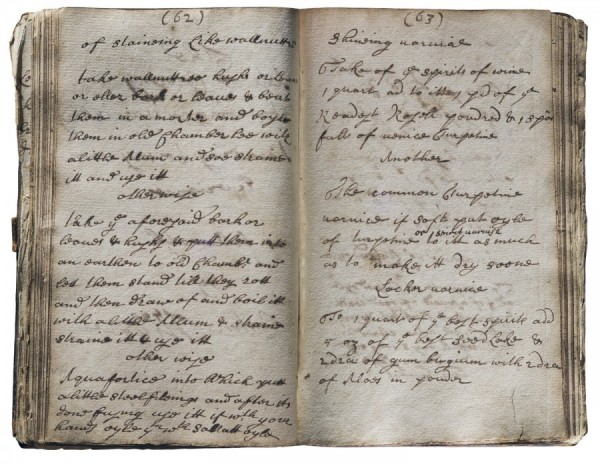 (62)
of staineing Like wallnutt
take wallnuttree husks or
or ellder bark or leaves & beat
them in a morter and boyle
them in old Chamber Lee with
alittle Allum and soe straine
itt and use itt
otherwise
take ye aforesaid bark or
leaves & husks & putt them into
an earthen to old Chamb and
let them stand till they rott
and then draw of and boil itt
with alittle Allum & straine
straine itt & use itt
other wise
Aquafortice into Which putt
alittle steel filings and after itt
done fuming use itt if with your
hands oyle ym with Sallatt oyle
(63)
Shining varnise
Take of ye spirits of wine
1 quart ad to itt 1 pd of ye
Rosell powdred & 1 spoon
full of venice Turpetine
Another
The common Turpetine
varnice if soft put oyle
or spirit varnise
of turpetine to itt as much
as to make itt dry soone
Locker varnice
To 1 quart of ye best spirits add
5 oz of ye best Seed Lake &
2dra of gum with 2dra
of Aloes in powder